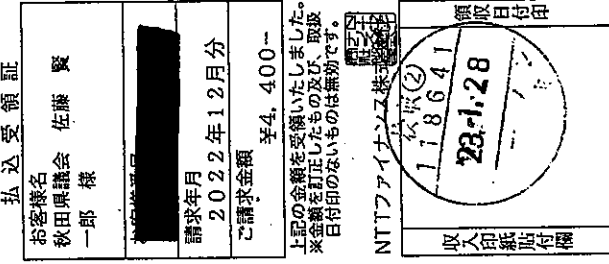 払込受領証
お客様名
秋田県議会 佐藤 賢
一郎 様
請求年月
2022年12月分
ご請求金額
¥4,400--
上記の金額を受領いたしました。
※金額を訂正したもの及び、取扱
日付印のないものは無効です。
NTTファイナンス株式会社
領収日付印
(2)
118641
23.-1.28
収入印紙貼付欄